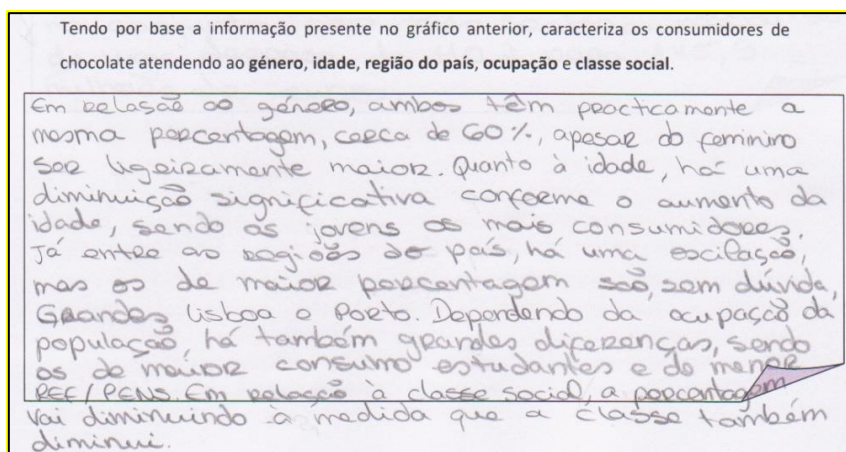 Tendo por base a informação presente no gráfico anterior, caracteriza os consumidores de
chocolate atendendo ao género, idade, região do país, ocupação e classe social.
Em relasão ao género, ambos têm practicamente a
mesma porcentagem, cerca de 60%, apesar do feminino
ser ligeiramente maior. Quanto à idade, há uma
diminuição significativa conforme o aumento da
idade, sendo os jovens os mais consumidores.
Já entre as regiões do país, há uma oscilação,
mas os de maior porcentagem são, sem dúvida,
Grandes Lisboa e Porto. Dependendo da ocupação da
população, há também grandes diferenças, sendo
os de maior consumo estudantes e de menor
REF/PENS. Em relação à classe social, a porcentagem
vai diminuindo à medida que a classe também
diminui.